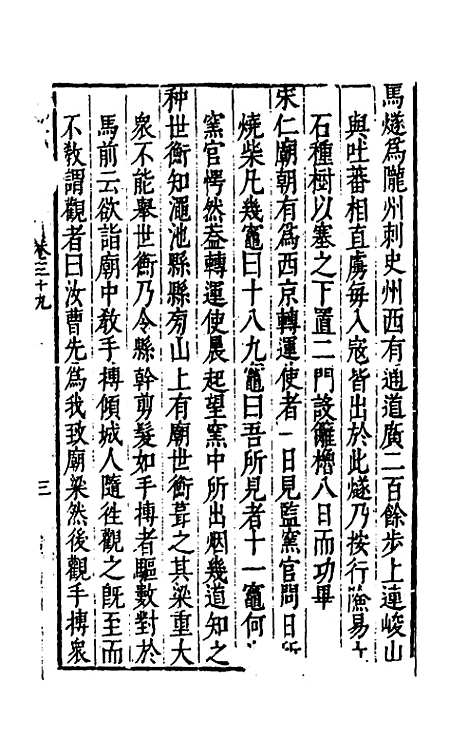 馬燧爲隴州刺史州西有通道廣二百餘步上連峻山
與吐蕃相直虜每入寇皆出於此燧乃按行險易
石種樹以塞之下置二門設籬櫓八日而功畢
宋仁廟朝有爲西京轉運使者一日見監窯官問日所
燒柴凡幾竈曰十八九竈曰吾所見者十一竈何
窯官愕然蓋轉運使晨起望窯中所出烟幾道知之
种世衡知澠池縣縣旁山上有廟世衡葺之其梁重大
衆不能舉世衡乃令縣幹剪髮如手搏者驅數對於
馬前云欲詣廟中教手搏傾城人隨徃觀之旣至而
不教謂觀者曰汝曹先爲我致廟梁然後觀手搏衆
卷三十九
三